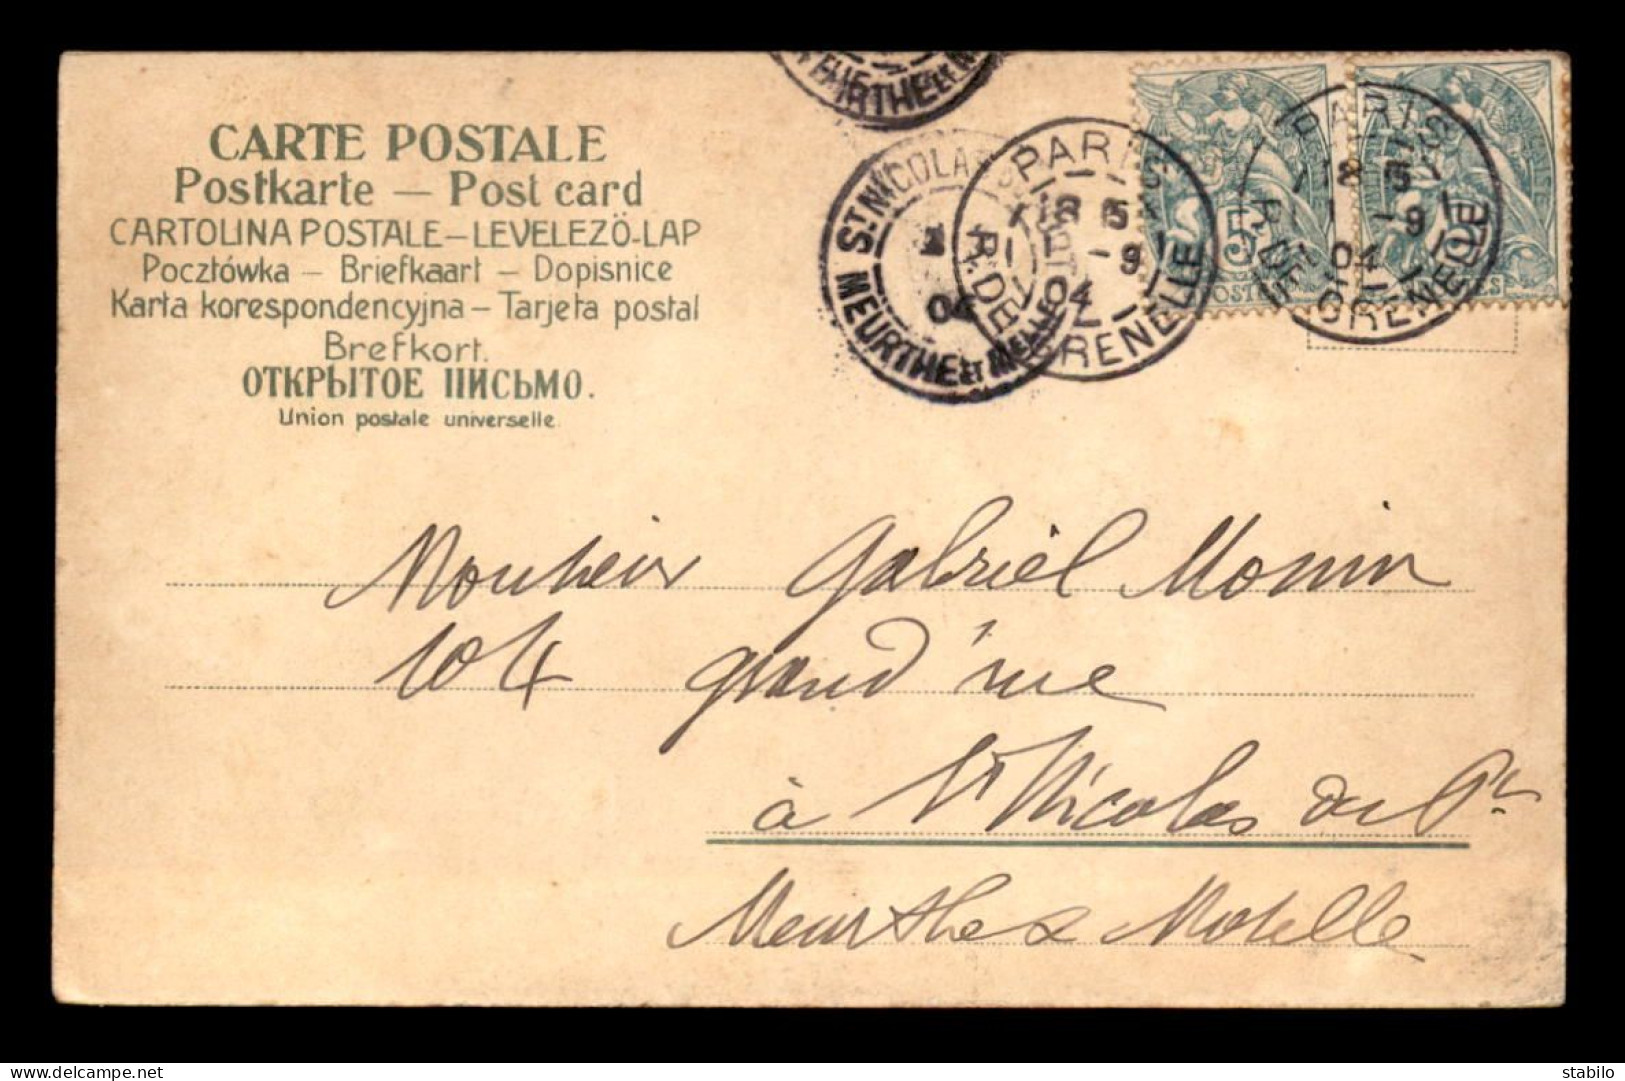 CARTE POSTALE
Postkarte — Post card
CARTOLINA POSTALE — LEVELEZÖ-LAP
Pocztówka — Briefkaart — Dopisnice
Karta korespondencyjna — Tarjeta postal
Brefkort.
ОТКРЫТОЕ ПИСЬМО.
Union postale universelle
MEURTHE ET M
ST NICOLAS
04
MEURTHE ET MLLE
PARIS
18 5
1 -9
04
R. DE GRENELLE
5
POSTES
PARIS
18 5
1 -9
04
R. DE GRENELLE
Monsieur Gabriel Monin
104 grand'rue
à St Nicolas du Pt
Meurthe & Moselle
stabilo